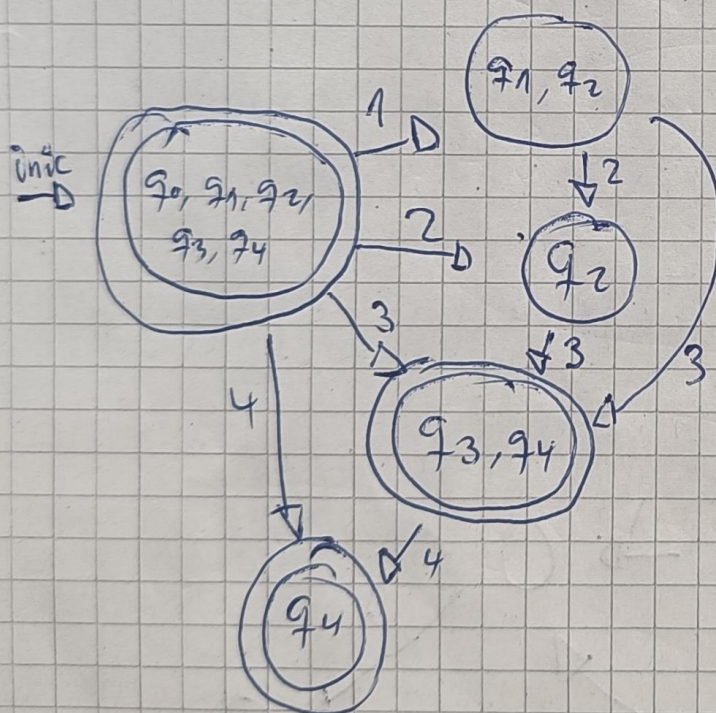 q1, q2
1
inic
2
q0, q1, q2,
q3, q4
2
q2
3
3
3
4
q3, q4
4
q4